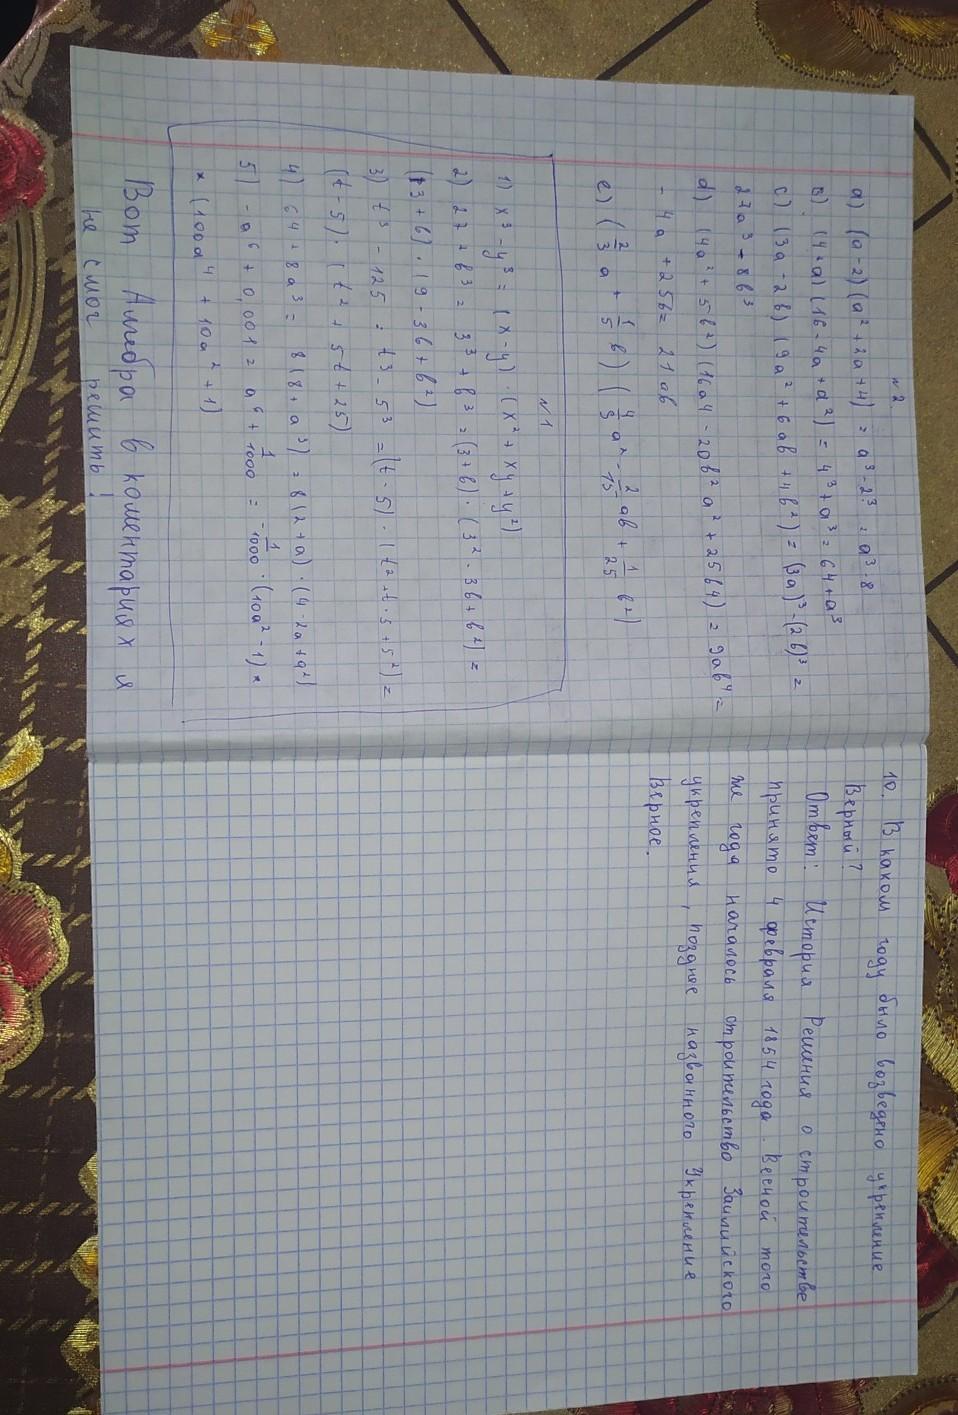 №2.
a) (a-2)(a²+2a+4) = a³-2³ = a³-8
в) (4+a)(16-4a+a²) = 4³+a³ = 64+a³
c) (3a-2b)(9a²+6ab+4b²) = (3a)³-(2b)³ =
27a³-8b³
d) (4a²+5b²)(16a4-20b²a²+25b4) = 9ab⁴ =
-4a+25b= 21ab
e) (2/3 a + 1/5 b) (4/9 a² - 2/15 ab + 1/25 b²)
№1
1) x³-y³ = (x-y)·(x²+xy+y²)
2) 27+b³ = 3³+b³ = (3+b)·(3²-3b+b²) =
(3+b)·(9-3b+b²)
3) t³-125 = t³-5³ = (t-5)·(t²+t·5+5²) =
(t-5)·(t²+5t+25)
4) 64+8a³ = 8(8+a³) = 8(2+a)·(4-2a+a²)
5) -a⁶+0,001 = a⁶+1/1000 = -1/1000·(10a²-1)×
×(100a⁴+10a²+1)
Вот Алгебра в коментариях я
не смог решить!
10. В каком году было возведено укрепление
Верный?
Ответ: История Решения о строительстве
принято 4 февраля 1854 года. Весной того
же года началось строительство Заилийского
укрепления, позднее названного Укрепление
Верное.